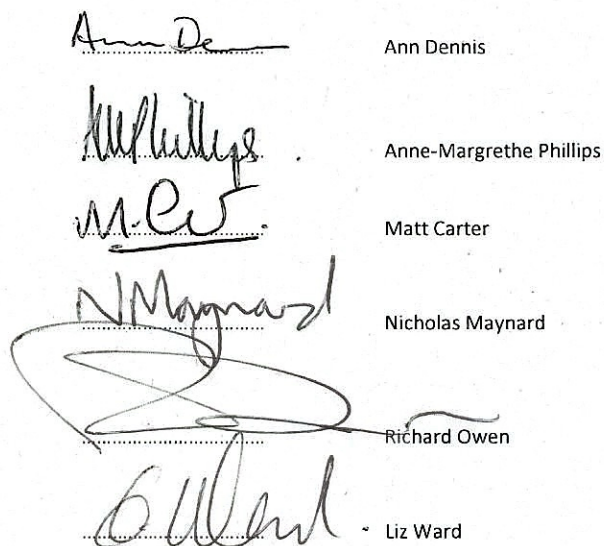 Ann De Ann Dennis
AMPhillips Anne-Margrethe Phillips
M. Matt Carter
NMaynard Nicholas Maynard
Richard Owen
E Ward Liz Ward